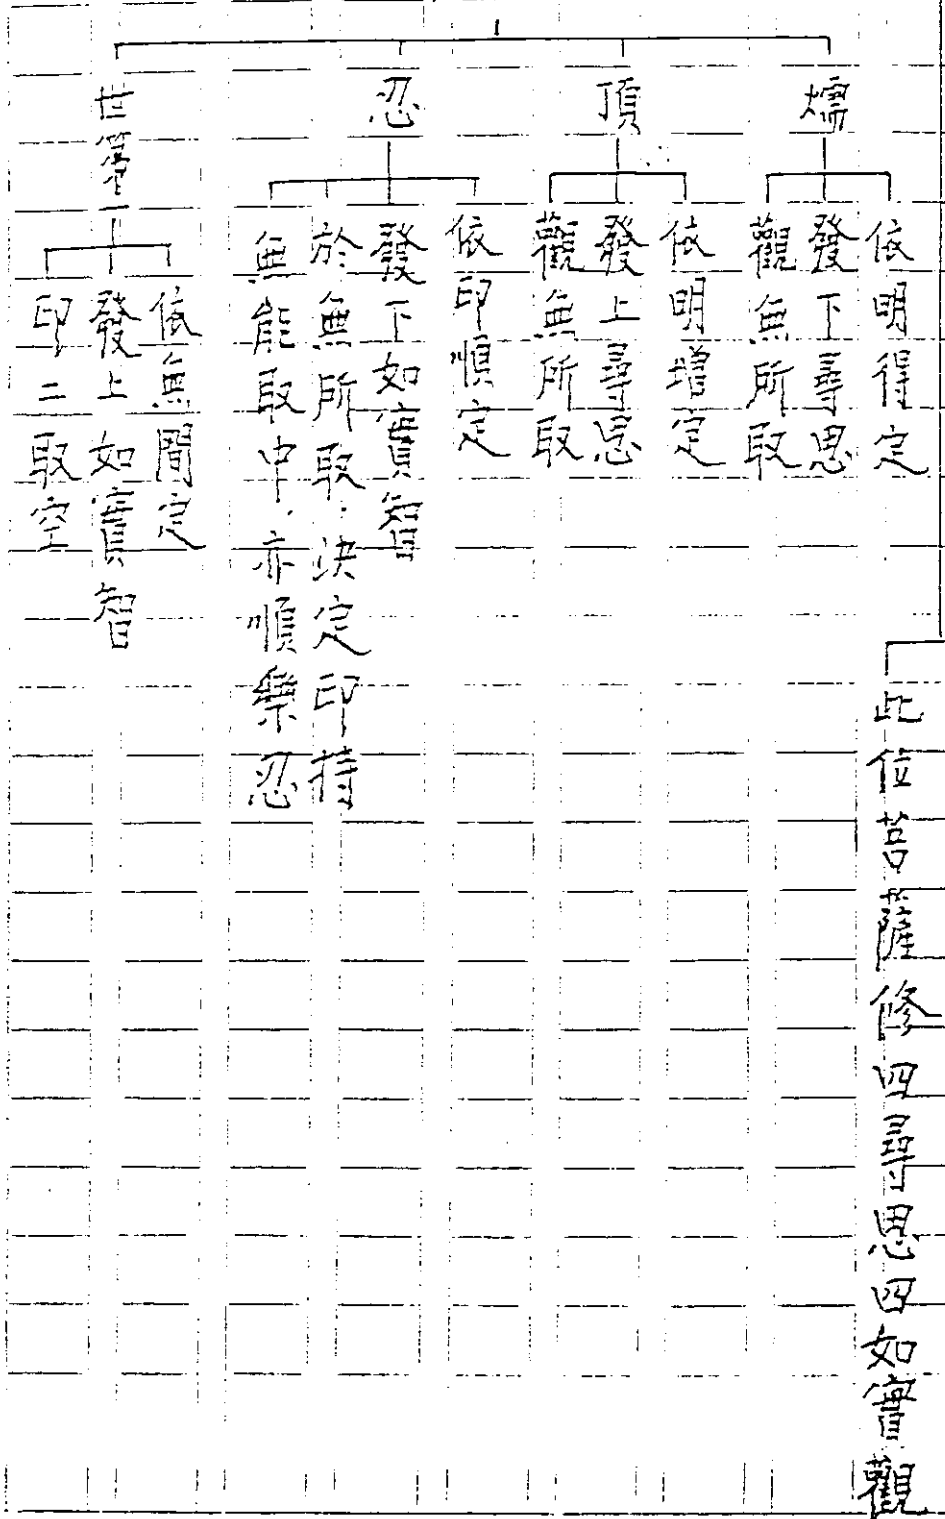 此位菩薩修四尋思四如實觀
煗
依明得定
發下尋思
觀無所取
頂
依明增定
發上尋思
觀無所取
忍
依印順定
發下如實智
於無所取．決定印持
無能取中．亦順樂忍
世第一
依無間定
發上如實智
印二取空